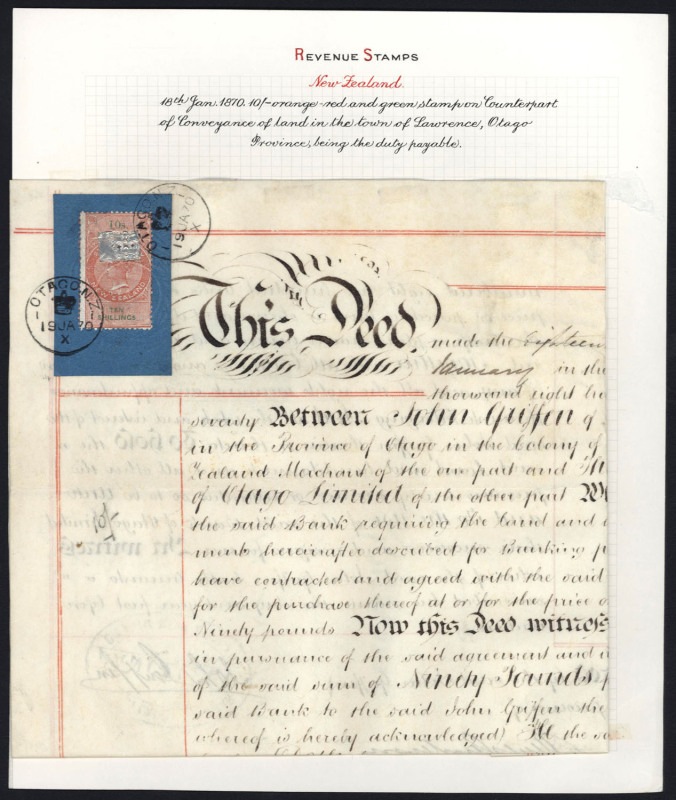 REVENUE STAMPS
New Zealand.
18th Jan. 1870. 10/- orange-red and green stamp on Counterpart
of Conveyance of land in the town of Lawrence, Otago
Province, being the duty payable.
OTAGO N.Z
19 JA 70
X
OTAGO N.Z
19 JA 70
X
10s
NEW ZEALAND
TEN
SHILLINGS
This Deed, made the Eighteen
January in the
thousand eight hu
seventy Between John Griffen of
in the Province of Otago in the Colony of
Zealand Merchant of the one part and
of Otago Limited of the other part
the said Bank requiring the land and
ments hereinafter described for Banking p
have contracted and agreed with the said
for the purchase thereof at or for the price o
Ninety pounds Now this Deed witness
in pursuance of the said agreement and
of the said sum of Ninety Pounds
said Bank to the said John Griffen the
whereof is hereby acknowledged) the sa